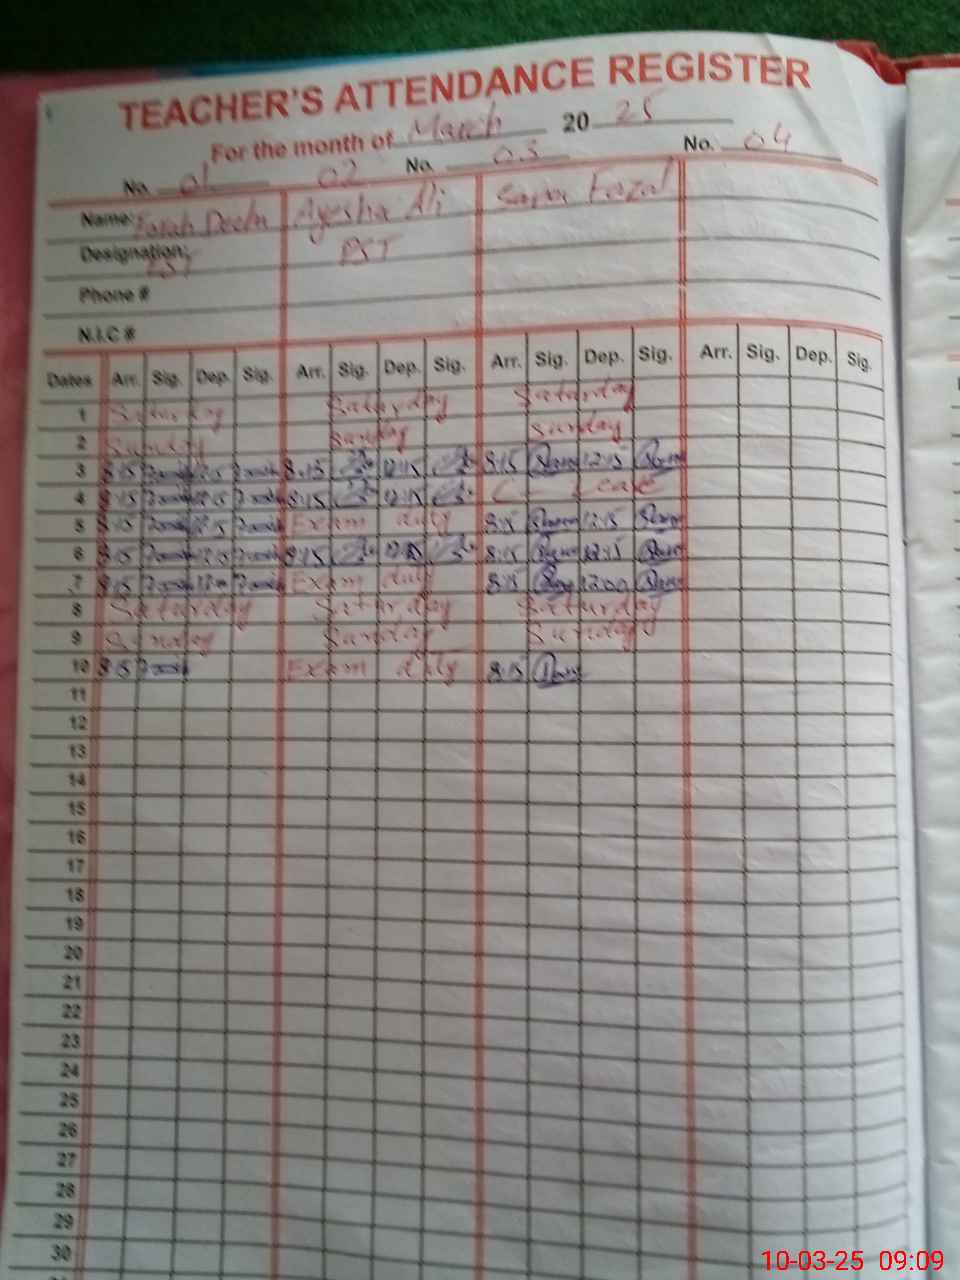 TEACHER'S ATTENDANCE REGISTER
For the month of March 2025
No. 01 02 No. 03 No. 04
Name: Farah Deeba Ayesha Ali Saba Fazal
Designation: PST PST
Phone #
N.I.C #
Dates Arr. Sig. Dep. Sig. Arr. Sig. Dep. Sig. Arr. Sig. Dep. Sig. Arr. Sig. Dep. Sig.
1 Saturday Saturday Saturday
2 Sunday Sunday Sunday
3 8:15 12:15 8:15 12:15 8:15 12:15
4 8:15 12:15 8:15 12:15 C- Leave
5 8:15 12:15 Exam duty 8:15 12:15
6 8:15 12:15 8:15 12:15 8:15 12:15
7 8:15 12:00 Exam duty 8:15 12:00
8 Saturday Saturday Saturday
9 Sunday Sunday Sunday
10 8:15 Exam duty 8:15
11
12
13
14
15
16
17
18
19
20
21
22
23
24
25
26
27
28
29
30
10-03-25 09:09